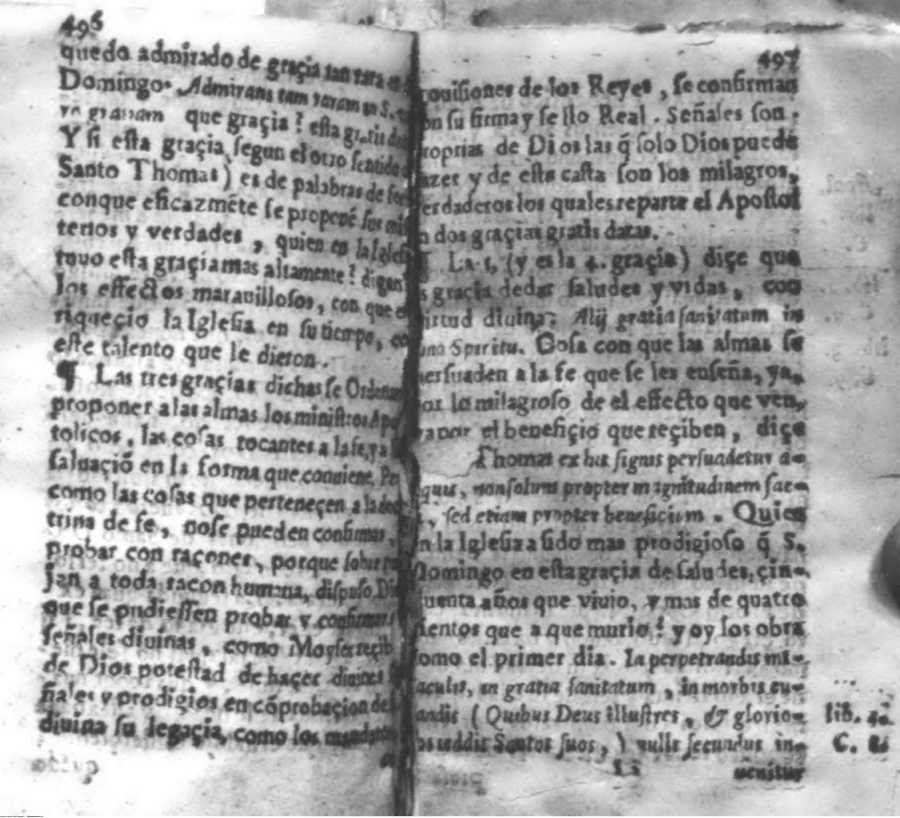 496
quedo admirado de graçia tan rara en
Domingo. Admirans tam raram in S.
gratiam que graçia? esta gratis
Y si esta graçia, segun el otro sentido
Santo Thomas) es de palabras de
conque eficazmēte se proponē sus mis
terios y verdades, quien en la Iglesia
tuvo esta graçia mas altamente? digan
los effectos maravillosos, con que en
riqueçio la Iglesia en su tiempo, con
este talento que le dieron.
¶ Las tres graçias dichas se Ordenan
proponer a las almas los ministros Apo
tolicos, las cosas tocantes a la fe, y a
saluaçiō en la forma que conviene. Pe
como las cosas que perteneçen a la doc
trina de fe, nose pueden confirmar,
probar con raçones, porque sobre pu
jan a toda racon humana, dispuso Di
que se pudiessen probar y confirmar
señales divinas, como Moyses reçib
de Dios potestad de haçer divinas
ñales y prodigios en cōprobaçion de
divina su legaçia, como los mandatos
497
rovisiones de los Reyes, se confirman
on su firma y sello Real. Señales son
roprias de Dios las q̄ solo Dios puede
azer y de esta casta son los milagros,
erdaderos los quales reparte el Apostol
n dos graçias gratis datas.
¶ La 1, (y es la 4. graçia) diçe que
s graçia de dar saludes y vidas, con
irtud divina: Alij gratia sanitatum in
uno Spiritu. Cosa con que las almas se
persuaden a la fe que se les enseña, ya,
por lo milagroso de el effecto que ven,
ya por el benefiçio que reçiben, diçe
Thomas ex his signis persuadetur a-
quis, non solum propter magnitudinem fac-
i, sed etiam propter beneficium. Quien
n la Iglesia a sido mas prodigioso q̄ S.
Domingo en esta graçia de saludes, çin-
uenta años que vivio, y mas de quatro
sientos que a que murio? y oy los obra
omo el primer dia. In perpetrandis mi-
aculis, in gratia sanitatum, in morbis cu-
andis (Quibus Deus illustres, & glorio-
os reddit Santos suos,) nulli secundus in-
lib. 4.
C.
Li
venitur